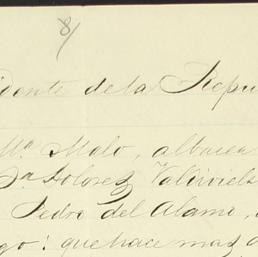 8/
idente de la Repu
Mª Malo, albacea
Dª Dolores Valdiviels
Pedro del Alamo,
go: que hace mas d